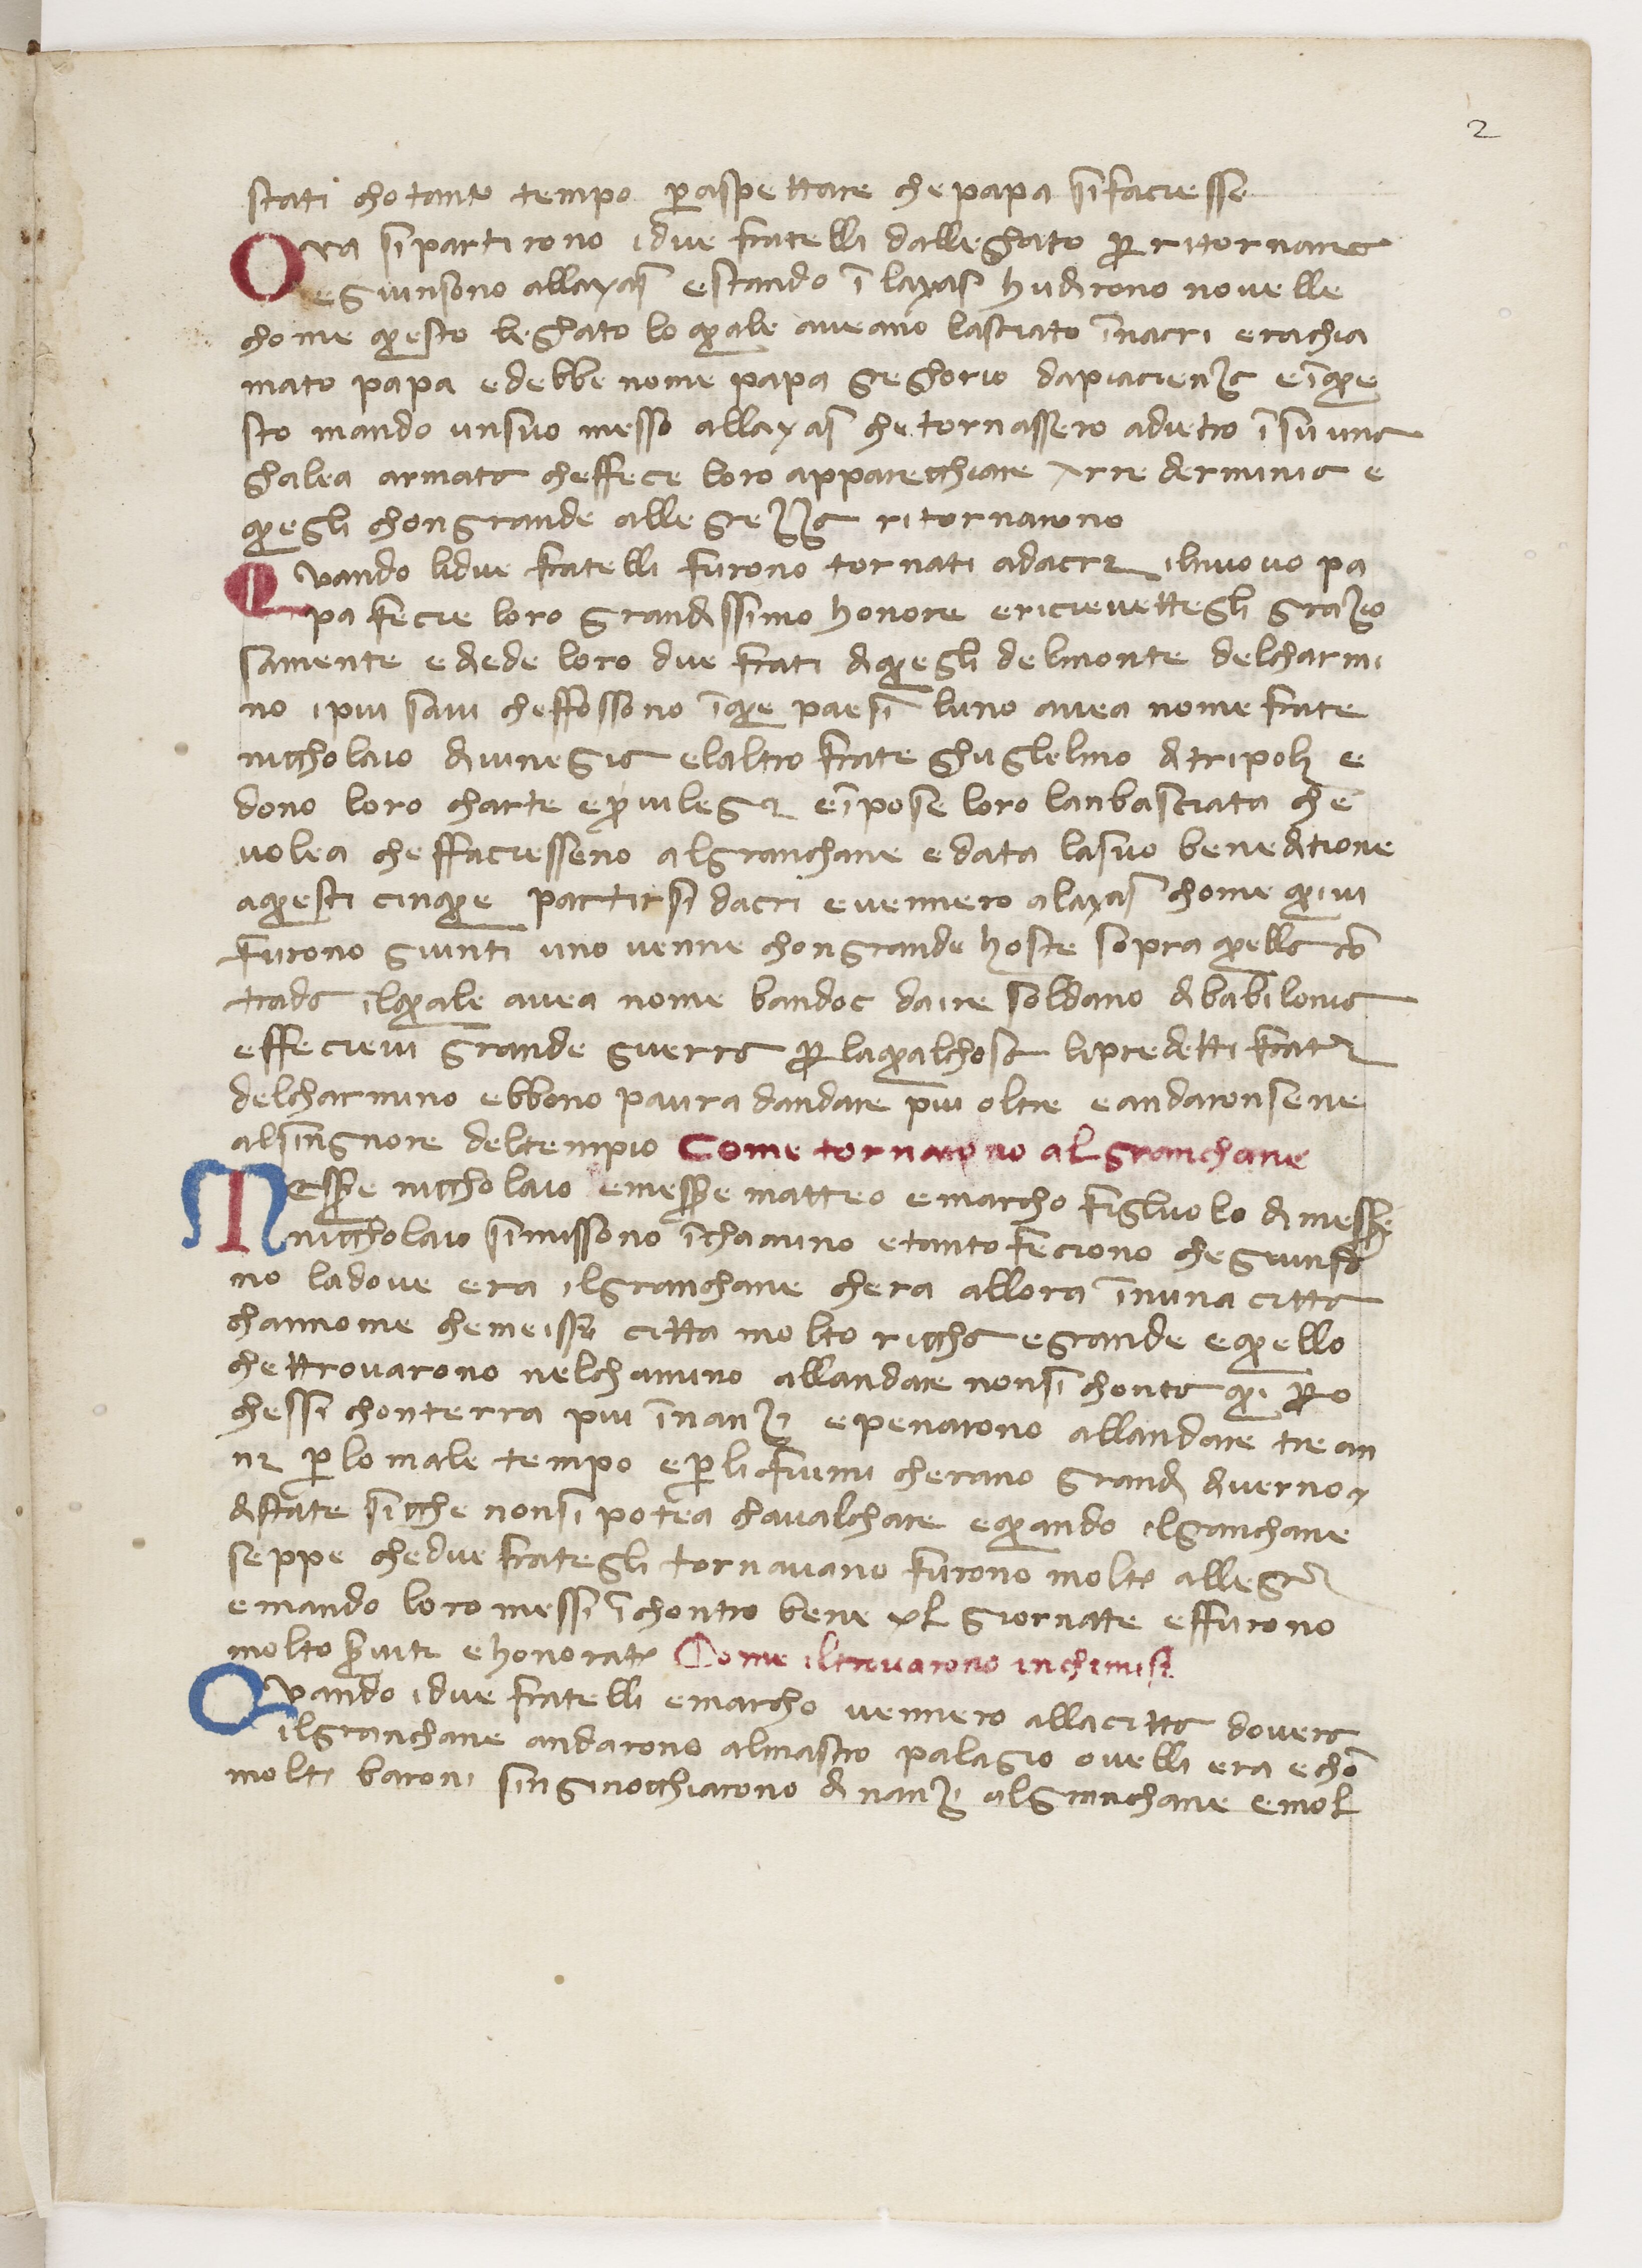 2
stati chotanto tempo p aspettare che papa si facresse
Ora si partirono i due fratelli dalleghato p ritornare
e giunsono allayas estando ī layas hudirono novelle
chome questo leghato lo quale aueano lasciato īnacri era chia
mato papa ed ebbe nome papa greghorio da piacienza e ī que
sto mando un suo messo allayas che tornassero adietro ī su una
ghalea armata cheffece loro apparecchiare rre derminia e
quegli chon grande allegrezza ritornarono
Quando li due fratelli furono tornati ad acri il nuovo pa
pa fecie loro grandissimo honore e ricievettegli grazio
samente e diede loro due frati di quegli del monte del charmi
no i piu savi cheffossono ī que paesi luno avea nome frate
niccholaio di vinegia e laltro frate ghuglielmo di tripoli e
dono loro charte e privilegi e īpose loro lanbasciata che
volea cheffaciesseno al granchane e data la suo beneditione
a questi cinque partirsi dacri e vennero a layas chome quivi
furono giunti uno venne chon grande hoste sopra quella cō
trada il quale avea nome bandoc daire soldano di babilonia
effecievi grande guerra p la qual chosa li predetti frati
del charmino ebbono paura dandare piu oltre e andaronsene
al singnore del tempio Come tornarono al granchane
Messere niccholaio e messere matteo e marcho figluolo di messere
niccholaio si missono ī chamino e tanto feciono che giunso
no ladove era il granchane chera allora ī nuna citta
channome chemeissu citta molto riccha e grande e quello
chettrovarono nel chamino allandare non si chonta qui pero
chessi chonterra piu īnanzi e penarono allandare tre an
ni p lo male tempo e p li fiumi cherano grandi diverno e
distate sicche non si potea chavalchare e quando il granchane
seppe che due frategli tornavano furono molto allegri
e mando loro messi īchontro bene xl giornate effurono
molto serviti e honorati Come il trovarono in chimisi
Quando i due fratelli e marcho vennero alla citta dovera
il granchane andarono al mastro palagio ovelli era e chō
molti baroni singinocchiarono dinanzi al granchane e mol